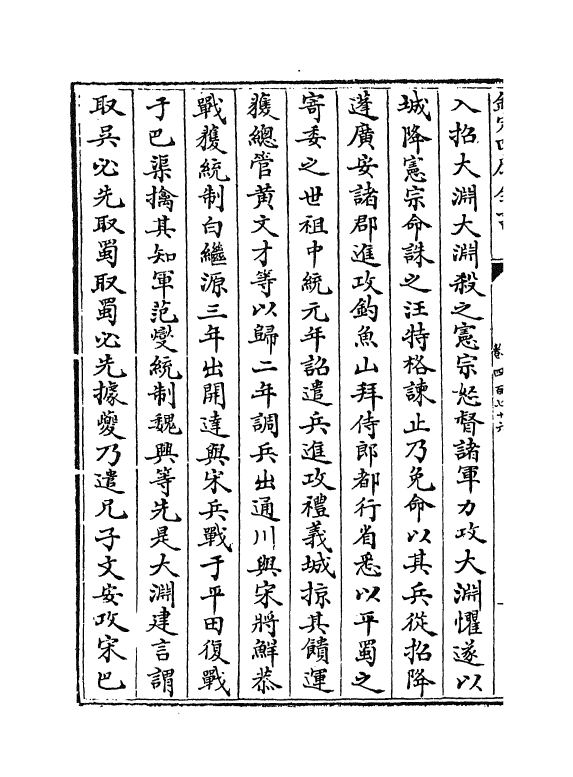 欽定四庫全書
卷四百七十六
入招大淵大淵殺之憲宗怒督諸軍力攻大淵懼遂以
城降憲宗命誅之汪特格諫止乃免命以其兵從招降
蓬廣安諸郡進攻釣魚山拜侍郎都行省悉以平蜀之
寄委之世祖中統元年詔遣兵進攻禮義城掠其饋運
獲總管黃文才等以歸二年調兵出通川與宋將鮮恭
戰獲統制白繼源三年出開達與宋兵戰于平田復戰
于巴渠擒其知軍范燮統制魏興等先是大淵建言謂
取吳必先取蜀取蜀必先據夔乃遣兄子文安攻宋巴